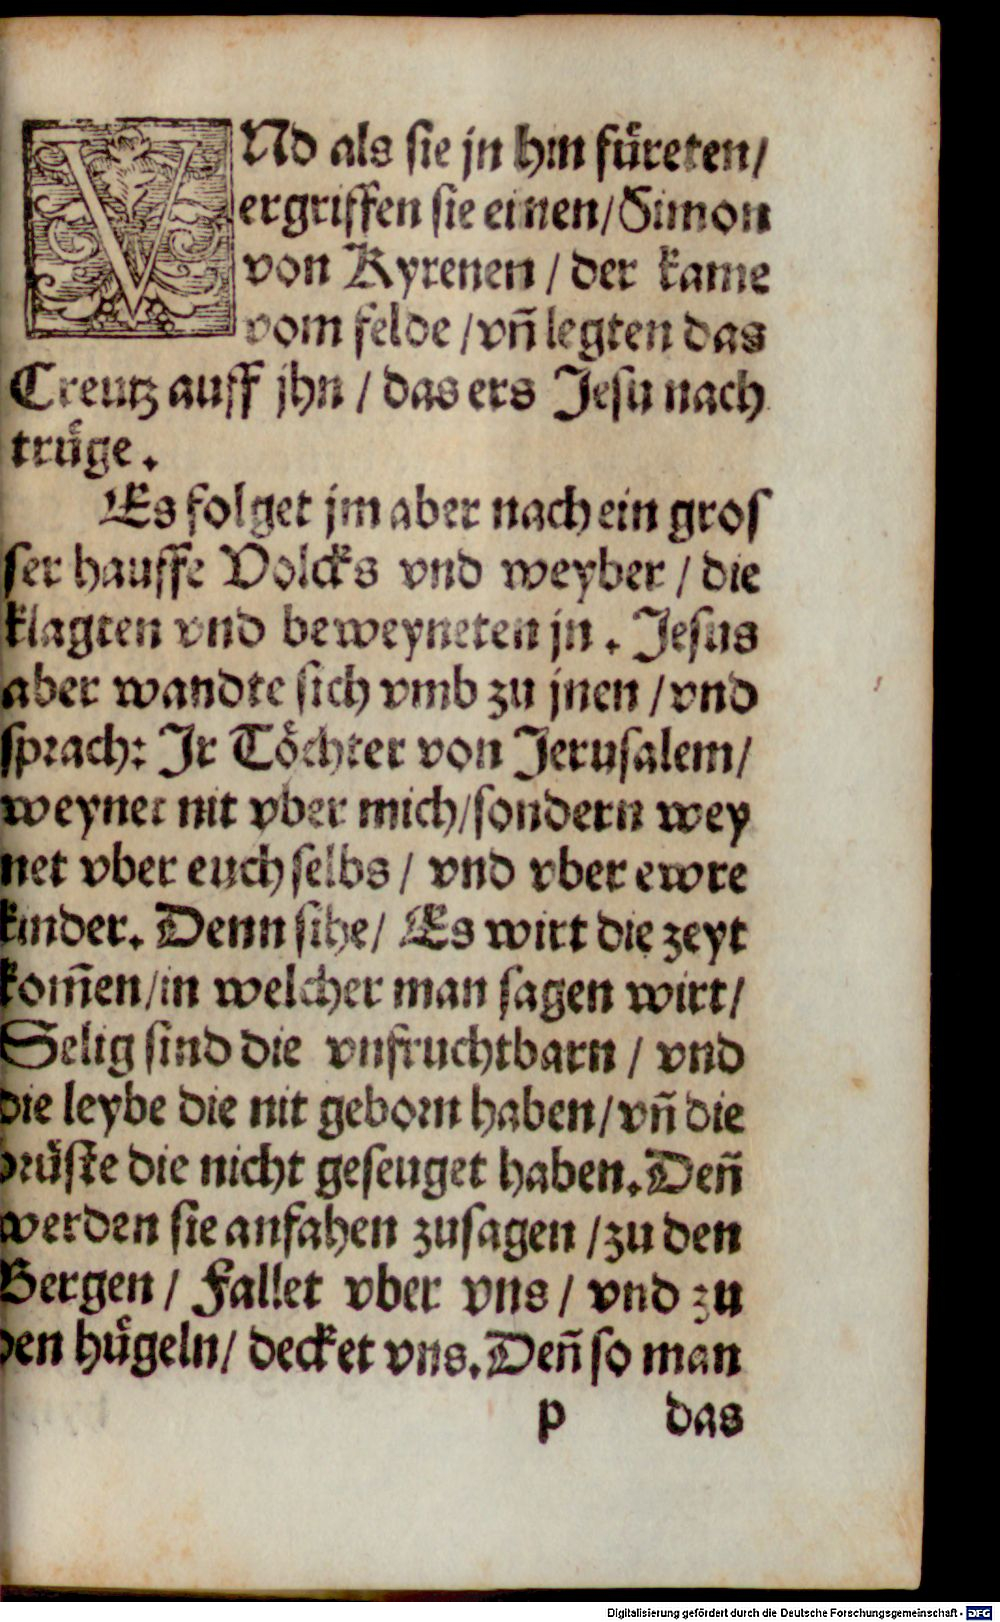 VNd als sie jn hin füreten/
ergriffen sie einen/Simon
von Kyrenen / der kame
vom felde /vñ legten das
Creutz auff jhn / das ers Jesu nach
trüge.
Es folget jm aber nach ein gros
ser hauffe Volcks vnd weyber / die
klagten vnd beweyneten jn. Jesus
aber wandte sich vmb zu jnen /vnd
sprach: Jr Töchter von Jerusalem/
weynet nit vber mich/sondern wey
net vber euch selbs / vnd vber ewre
kinder. Denn sihe/ Es wirt die zeyt
kom̃en/in welcher man sagen wirt/
Selig sind die vnfruchtbarn / vnd
die leybe die nit geborn haben/vñ die
brüste die nicht geseuget haben. Deñ
werden sie anfahen zusagen /zu den
Bergen / Fallet vber vns / vnd zu
den hügeln/ decket vns. Deñ so man
p das
Digitalisierung gefördert durch die Deutsche Forschungsgemeinschaft - DFG